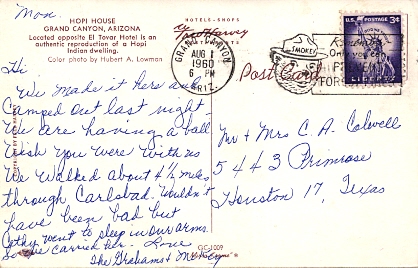 Mon.
HOPI HOUSE
GRAND CANYON, ARIZONA
Located opposite El Tovar Hotel is an
authentic reproduction of a Hopi
Indian dwelling.
Color photo by Hubert A. Lowman
HOTELS - SHOPS
Fred Harvey
GRAND CANYON
AUG 1
6 PM
1960
ARIZ.
Post Card
SMOKEY
U.S. POSTAGE 3¢
LIBERTY
Hi
We made it here and
Camped out last night.
We are having a ball
Wish you were with us
We walked about 4 ½ miles
through Carlsbad. Wouldn't
have been bad but
Cathy went to sleep in our arms
So we carried her. Love
The Grahams &
Mr & Mrs C. A. Colwell
5443 Primrose
Houston 17, Texas
GC-1009